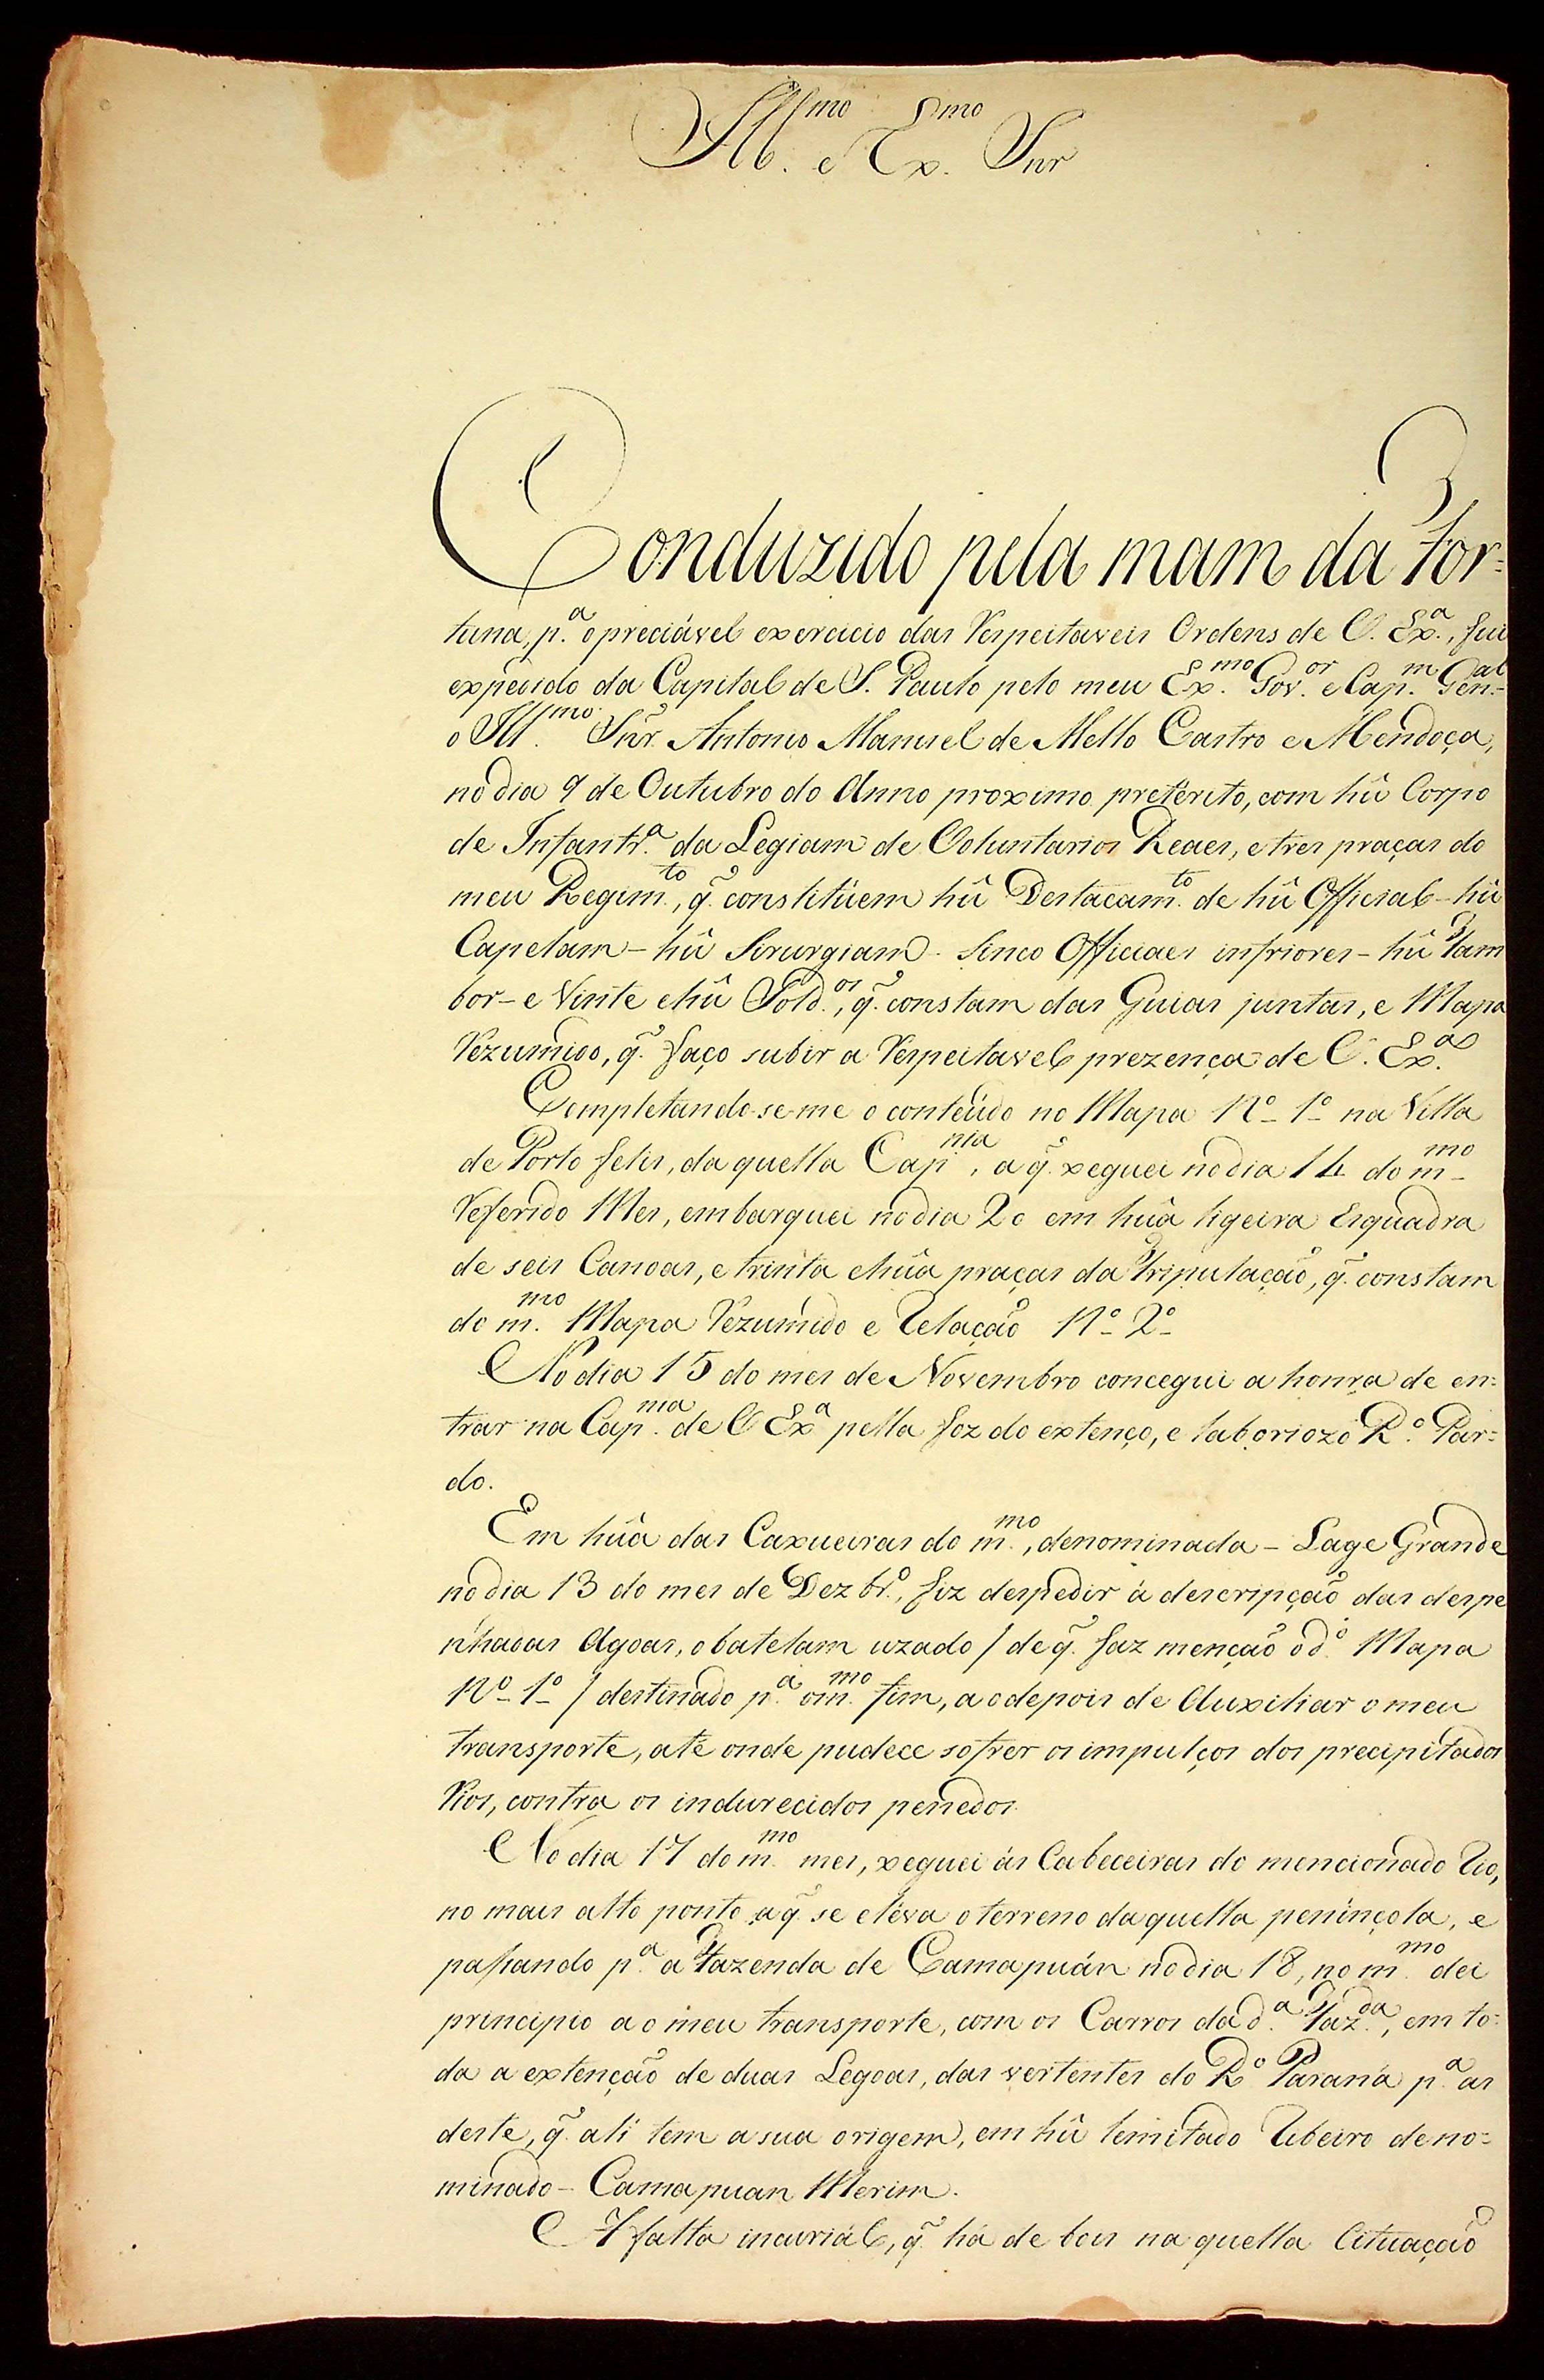 Ill.mo e Ex.mo Snr
Conduzido pela mam da For=
tuna, p.a o preciável exercicio das Respeitaveis Ordens de V. Ex.a, fui
expedido da Capital de S. Paulo pelo meu Ex.mo Gov.or e Cap.m Gen.al
o Ill.mo Snr. Antonio Manuel de Mello Castro e Mendoça,
no dia 9 de Outubro do Anno proximo pretérito, com hû Corpo
de Infantr.a da Legiam de Voluntarios Reaes, e tres praças do
meu Regim.to, q̃. constitûem hû Destacam.to de hû Official - hû
Capelam - hû Sirurgiam - Sinco Officiaes infriores - hû Tam
bor - e Vinte e hû Sold.os, q̃. constam das Guias juntas, e Mapa
Rezumido, q̃. faço subir a Respeitavel prezença de V. Ex.a
Completando-se-me o conteúdo no Mapa Nº 1º na Villa
de Porto felis, da quella Cap.nia, a q̃. xeguei no dia 14 do m.mo
Referido Mes, embarquei no dia 20 em hûa ligeira Esquadra
de seis Canoas, e trinta e hûa praças da Tripulação, q̃. constam
do m.mo Mapa Rezumido e Relação Nº 2º
No dia 15 do mes de Novembro concegui a honra de en=
trar na Cap.nia de V Ex.a pella foz do extenço, e laboriozo R.º Par=
do.
Em hûa das Caxueiras do m.mo, denominada - Lage Grande
no dia 13 do mes de Dezbr.º, fiz despedir á descripção das despe
nhadas Agoas, o batelam uzado / de q̃. faz menção o d.º Mapa
Nº 1º / destinado p.a o m.mo fim, a o depois de Auxiliar o meu
transporte, até onde pudece sofrer os impulços dos precipitados
Rios, contra os indurecidos penedos.
No dia 17 do m.mo mes, xeguei ás Cabeceiras do mencionado Rio,
no mais alto ponto a q̃ se eléva o terreno daquella penínçola, e
passando p.a a Fazenda de Camapuán no dia 18, no m.mo dei
principio a o meu transporte, com os Carros da d.a Faz.da, em to=
da a extenção de duas Legoas, das vertentes do R.º Paraná p.a as
deste, q̃. ali tem a sua origem, em hû lemitado Ribeiro deno=
minado - Camapuan Merim.
A falta incuriál, q̃. há de bois na quella Cituação